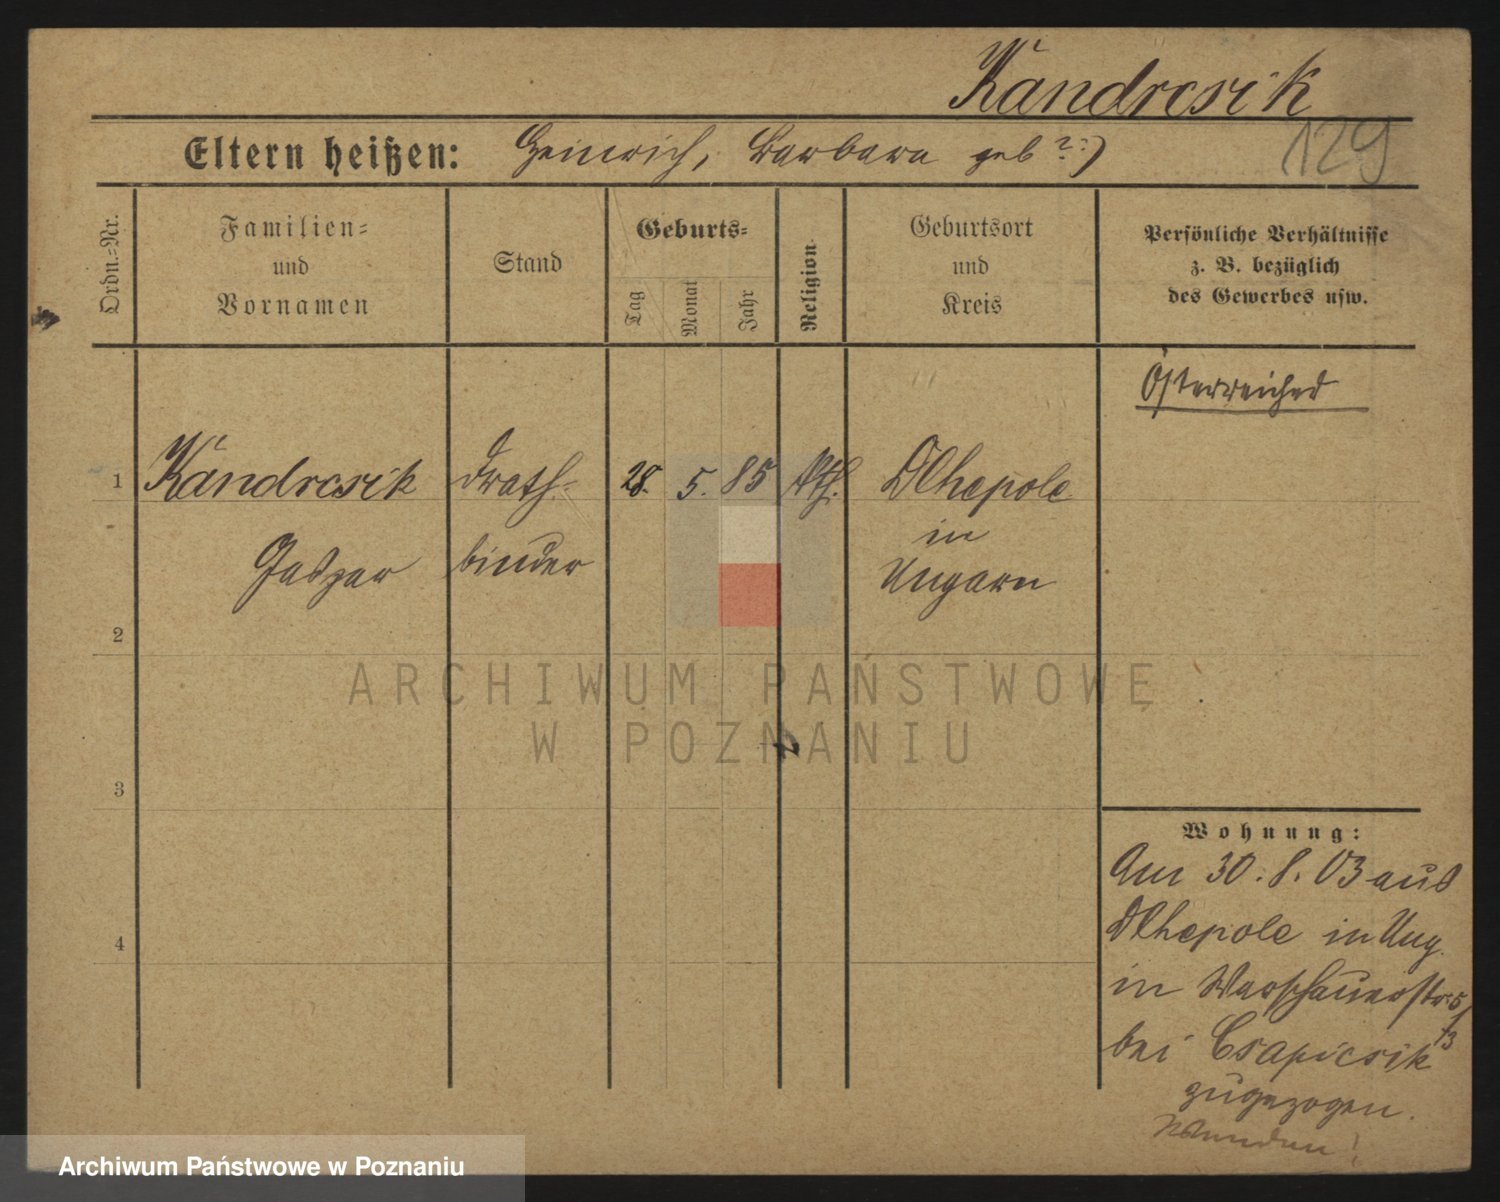 Kandrcsik
129
Eltern heißen: Heinrich, Barbara geb ??)
Ordn.-Nr.
Familien-
und
Vornamen
Stand
Geburts-
Tag
Monat
Jahr
Religion
Geburtsort
und
Kreis
Persönliche Verhältnisse
z. B. bezüglich
des Gewerbes usw.
Österreicher
1 Kandrcsik Drath- 28. 5. 85 kth. Dlhepole
in
Jaszar binder Ungarn
2
3
4
ARCHIWUM PAŃSTWOWE
W POZNANIU
Wohnung:
Am 30. 8. 03 aus
Dlhepole in Ung.
in Warschauerstr. 5/3
bei Csapicsik
zugezogen.
Wenden!
Archiwum Państwowe w Poznaniu